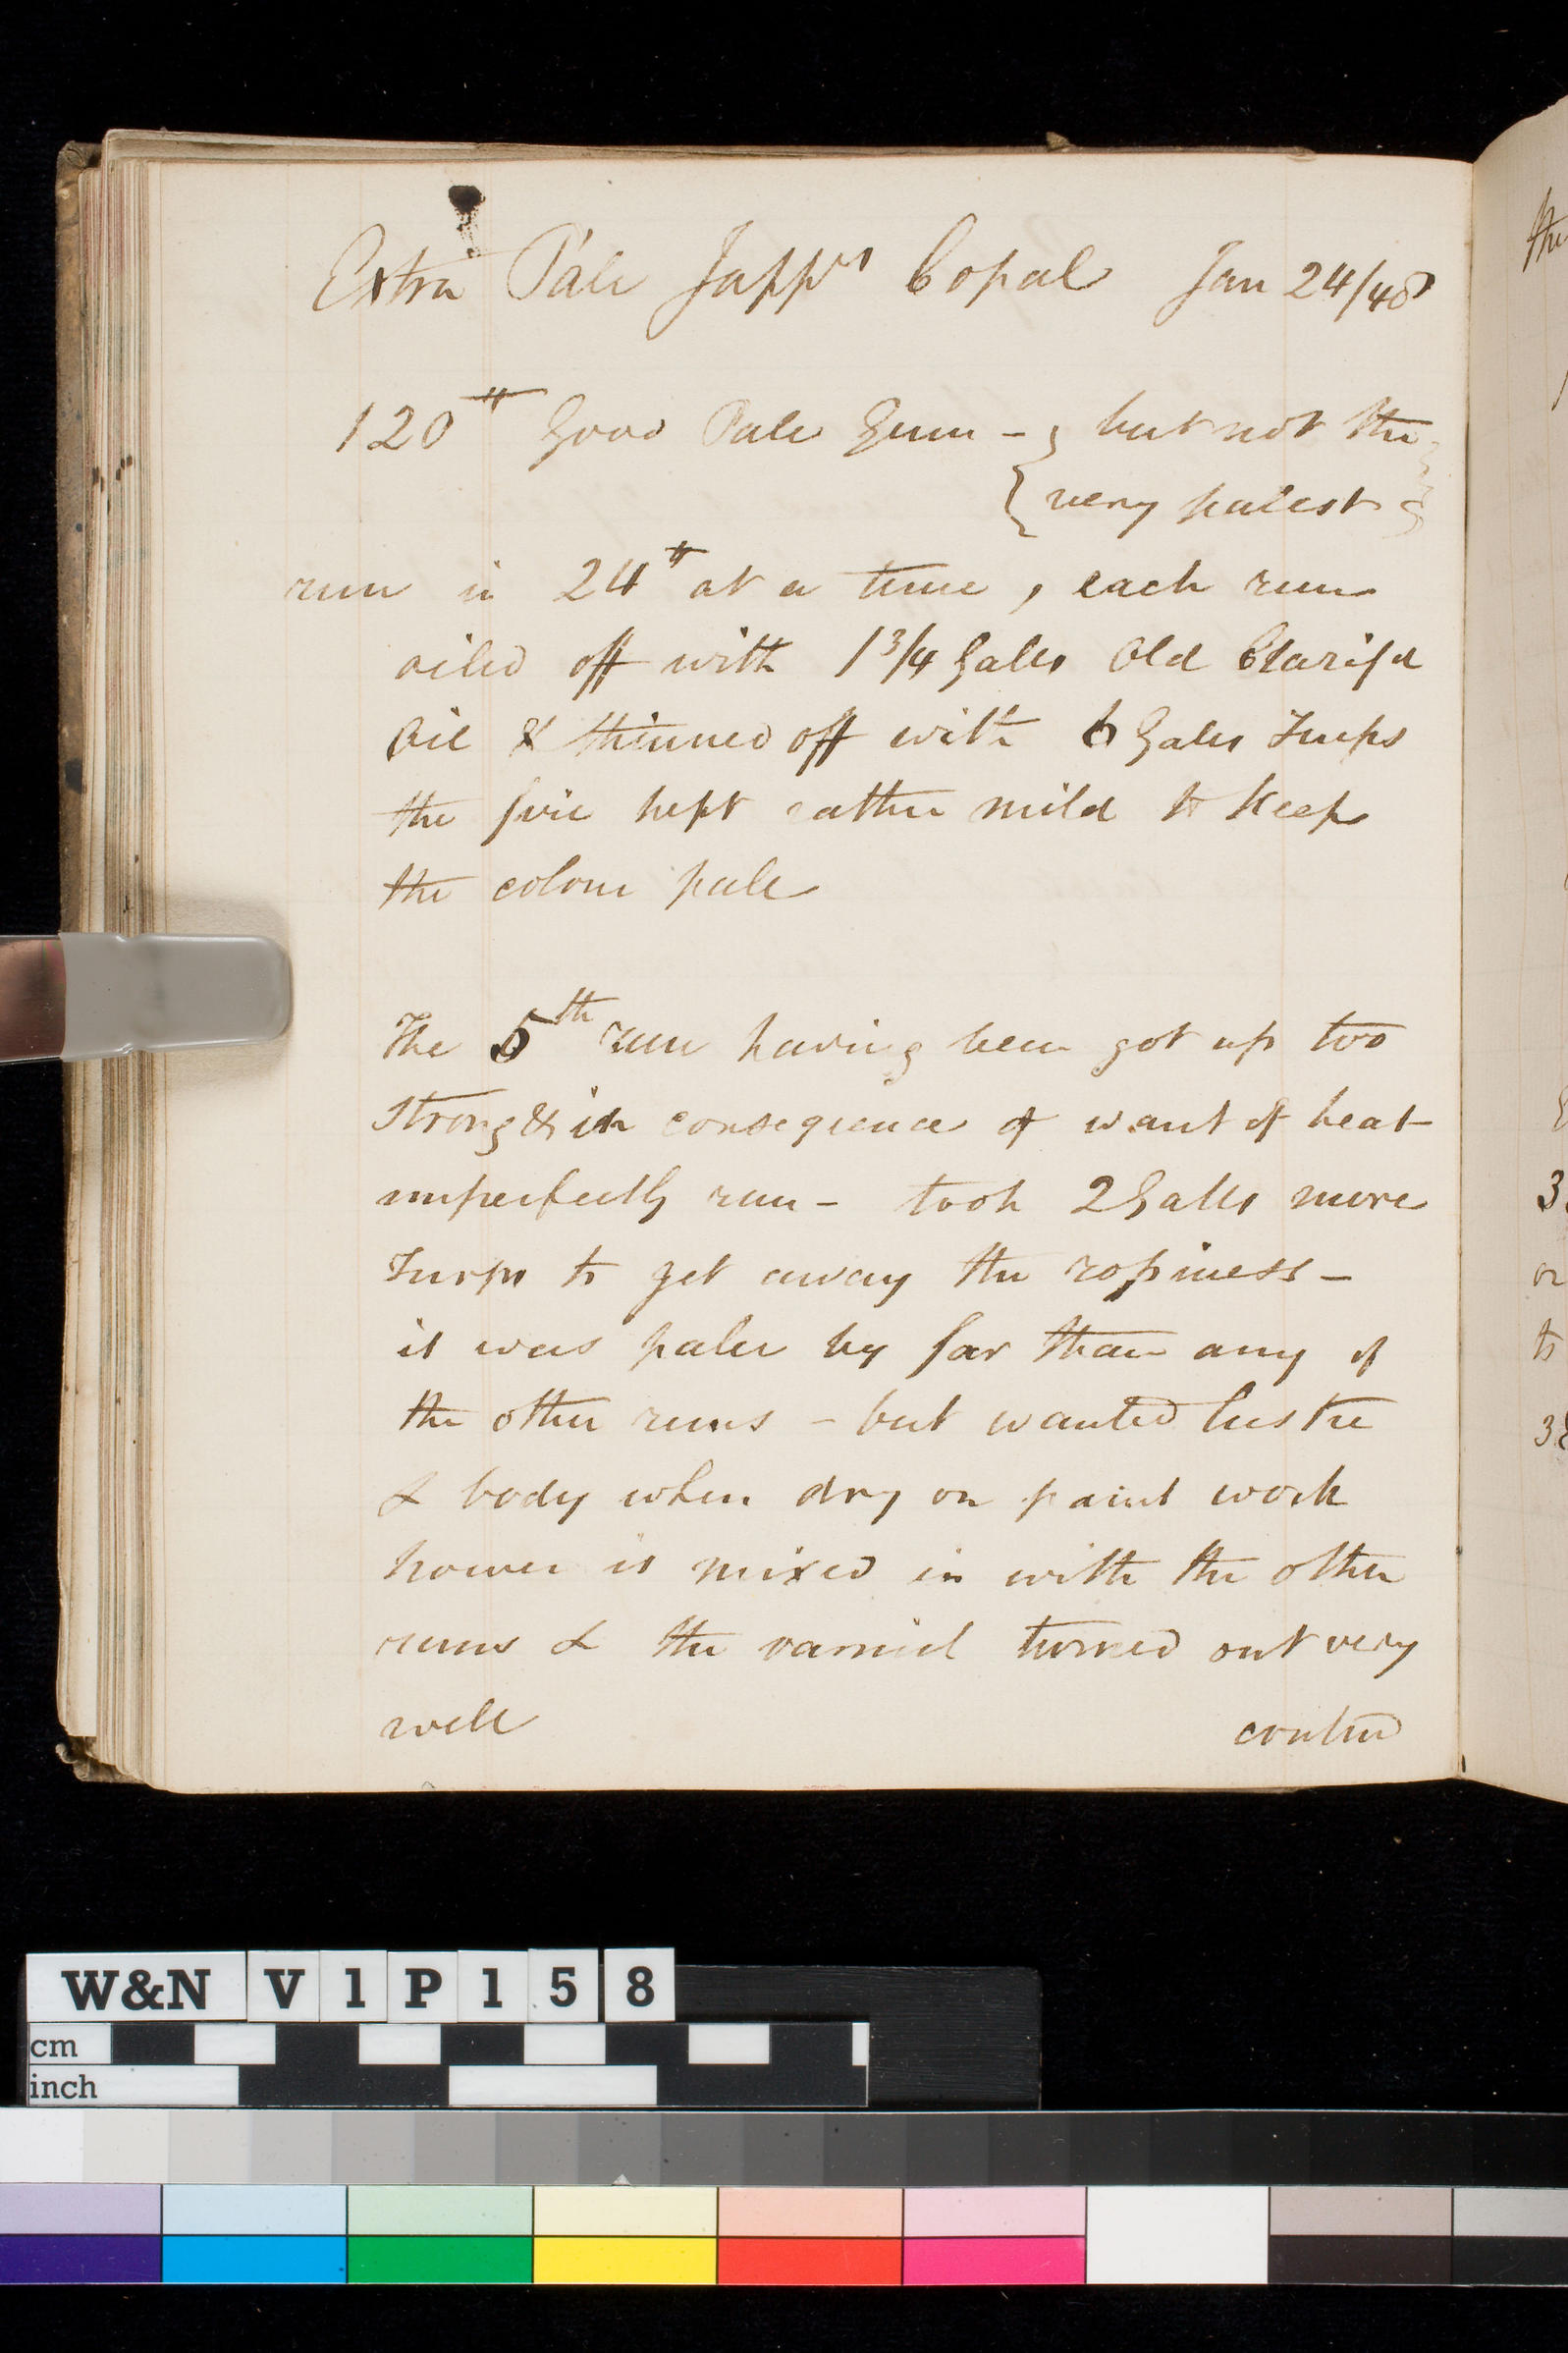 Extra Pale Japprs Copal Jan 24/48
120 lb Good Pale Gum - } but not the }
{ very palest }
run in 24 lb at a time, each run
oiled off with 1 3/4 Galls Old Clarifd
Oil & thinned off with 6 Galls Turps
the fire kept rather mild to keep
the colour pale
The 5th run having been got up too
strong & in consequence of want of heat
imperfectly run - took 2 Galls more
Turps to get away the ropiness -
it was paler by far than any of
the other runs - but wanted lustre
& body when dry on paint work
however is mixed in with the other
runs & the varnish turned out very
well contind
the
3
or
to
38
W&N V1P158
cm
inch